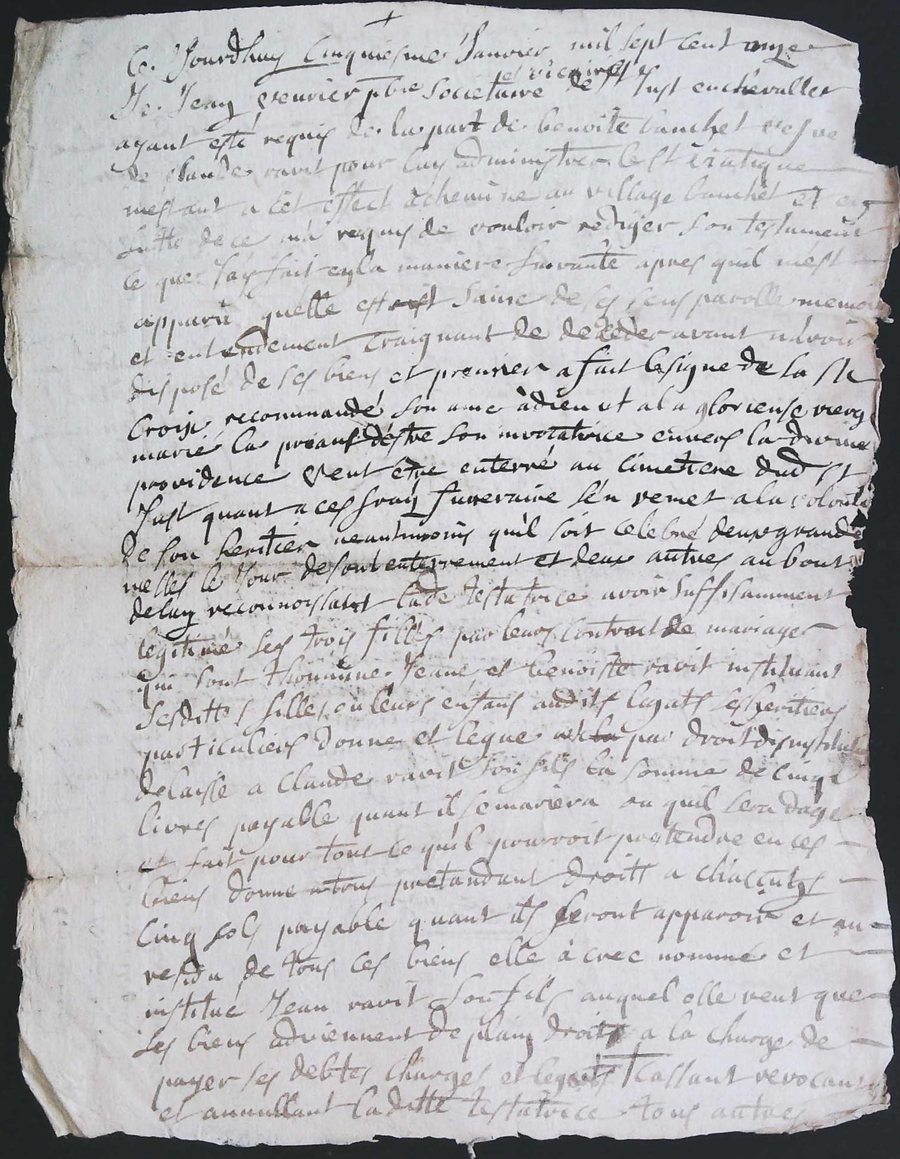 Ce Jourdhuy Cinquiesme Janvier mil sept cent onze
Je Jean Verrier pbre Societaire et vicaire de St Just en chevallet
ayant esté requis de la part de benoite banchet vesve
de Claude ravit pour luy administrer le St viatique
mestant a cet effect acheminé au village banchet et en
suitte de ce m'a requis de vouloir rediger son testament
ce que J'ay fait en la maniere suivante apres quil mest
apparu quelle estoit saine de ses sens parolle memoire
et entendement Craignant de deceder avant n'avoir
disposé de ses biens et premier a fait le signe de la Ste
Croix recommandé son ame à dieu et a la glorieuse vierg
marie la priant d'estre son invocatrice envers la divine
providence veut être enterré au cimetiere dud St
Just quant a ces fraiz funeraire s'en remet a la volonté
de son heritier neantmoins qu'il soit celebré deux grande
messes le Jour de son enterrement et deux autres au bout
de lan reconnoissant lade testatrice avoir suffisamment
legitimé ses trois filles par leurs Contrait de mariages
qui sont thoumine Jeane et benoiste ravit instituant
sesdittes filles ou leurs enfans audits legats ses heritiers
particuliers donne et legue par droit dinstitut
delaisse a Claude ravit son fils la somme de Cinq
livres payable quant il se mariera ou quil sera dage
et fait pour tout ce qu'il pourroit pretendre en ces
biens donne a tous pretandant droits a chacuns
Cinq sols payable quant ils feront apparoir et au
residu de tous ces biens elle à cree nommé et
institué Jean ravit son fils auquel elle veut que
ses biens adviennent de plain droits a la Charge de
payer ses debtes Charges et legats Cassant revocant
et annullant laditte testatrice tous autres